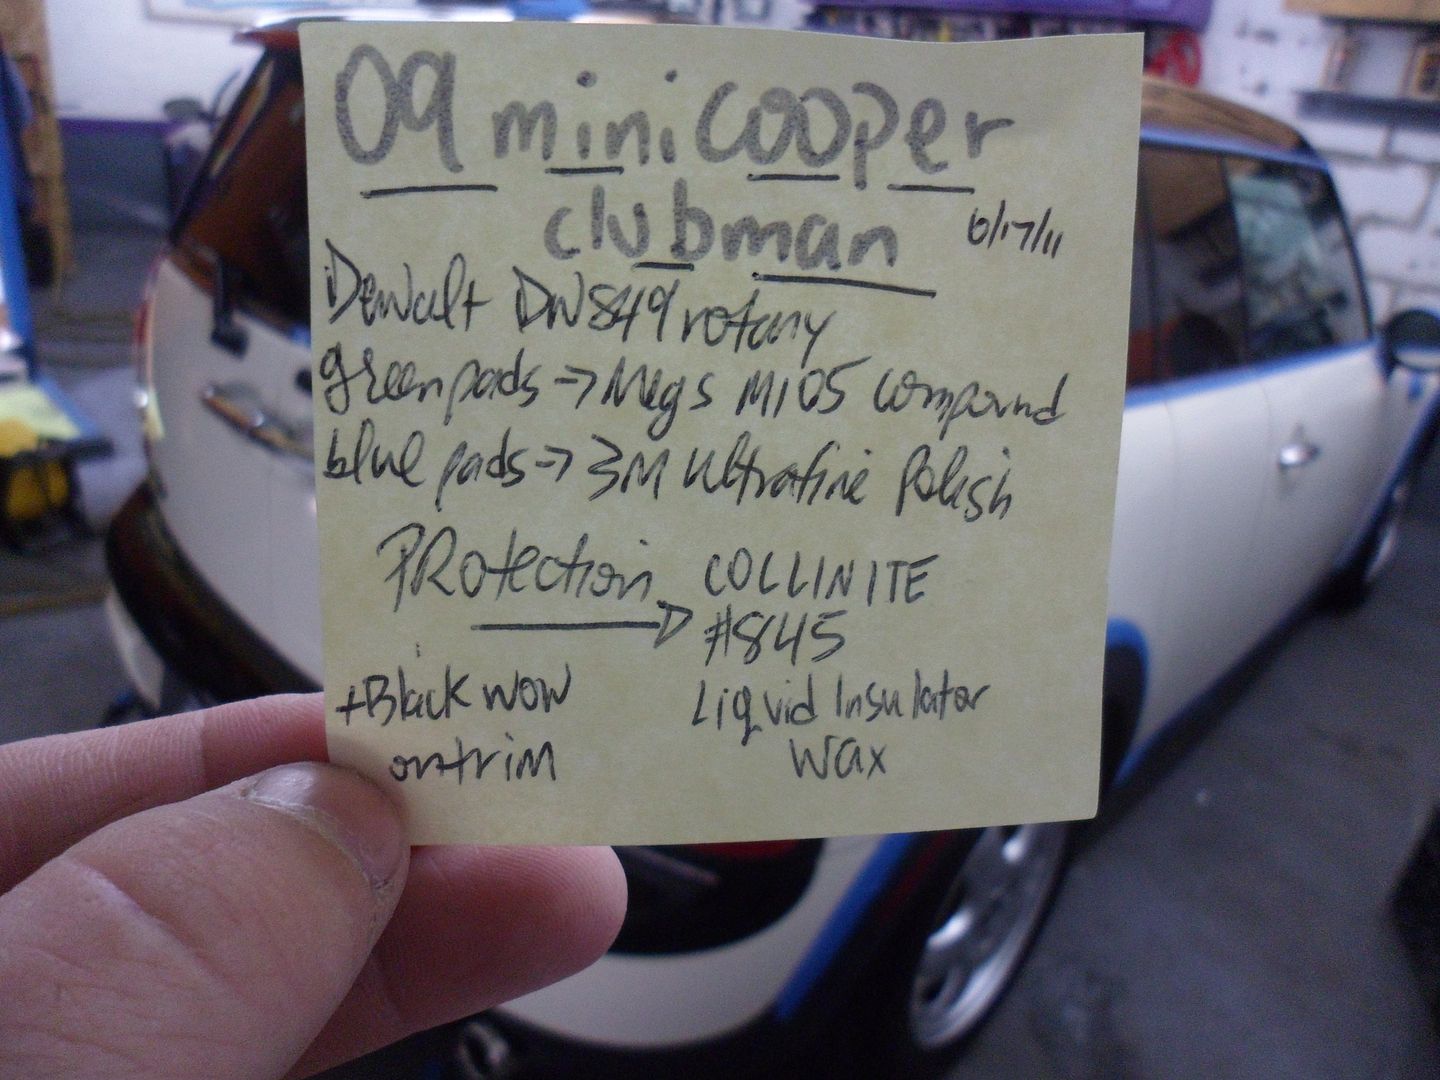 09 mini cooper
clubman 6/17/11
Dewalt DW849 rotary
green pads -> Megs M105 compound
blue pads -> 3M Ultrafine Polish
PROtection -> COLLINITE
#845
+Black wow Liquid Insulator
on trim wax